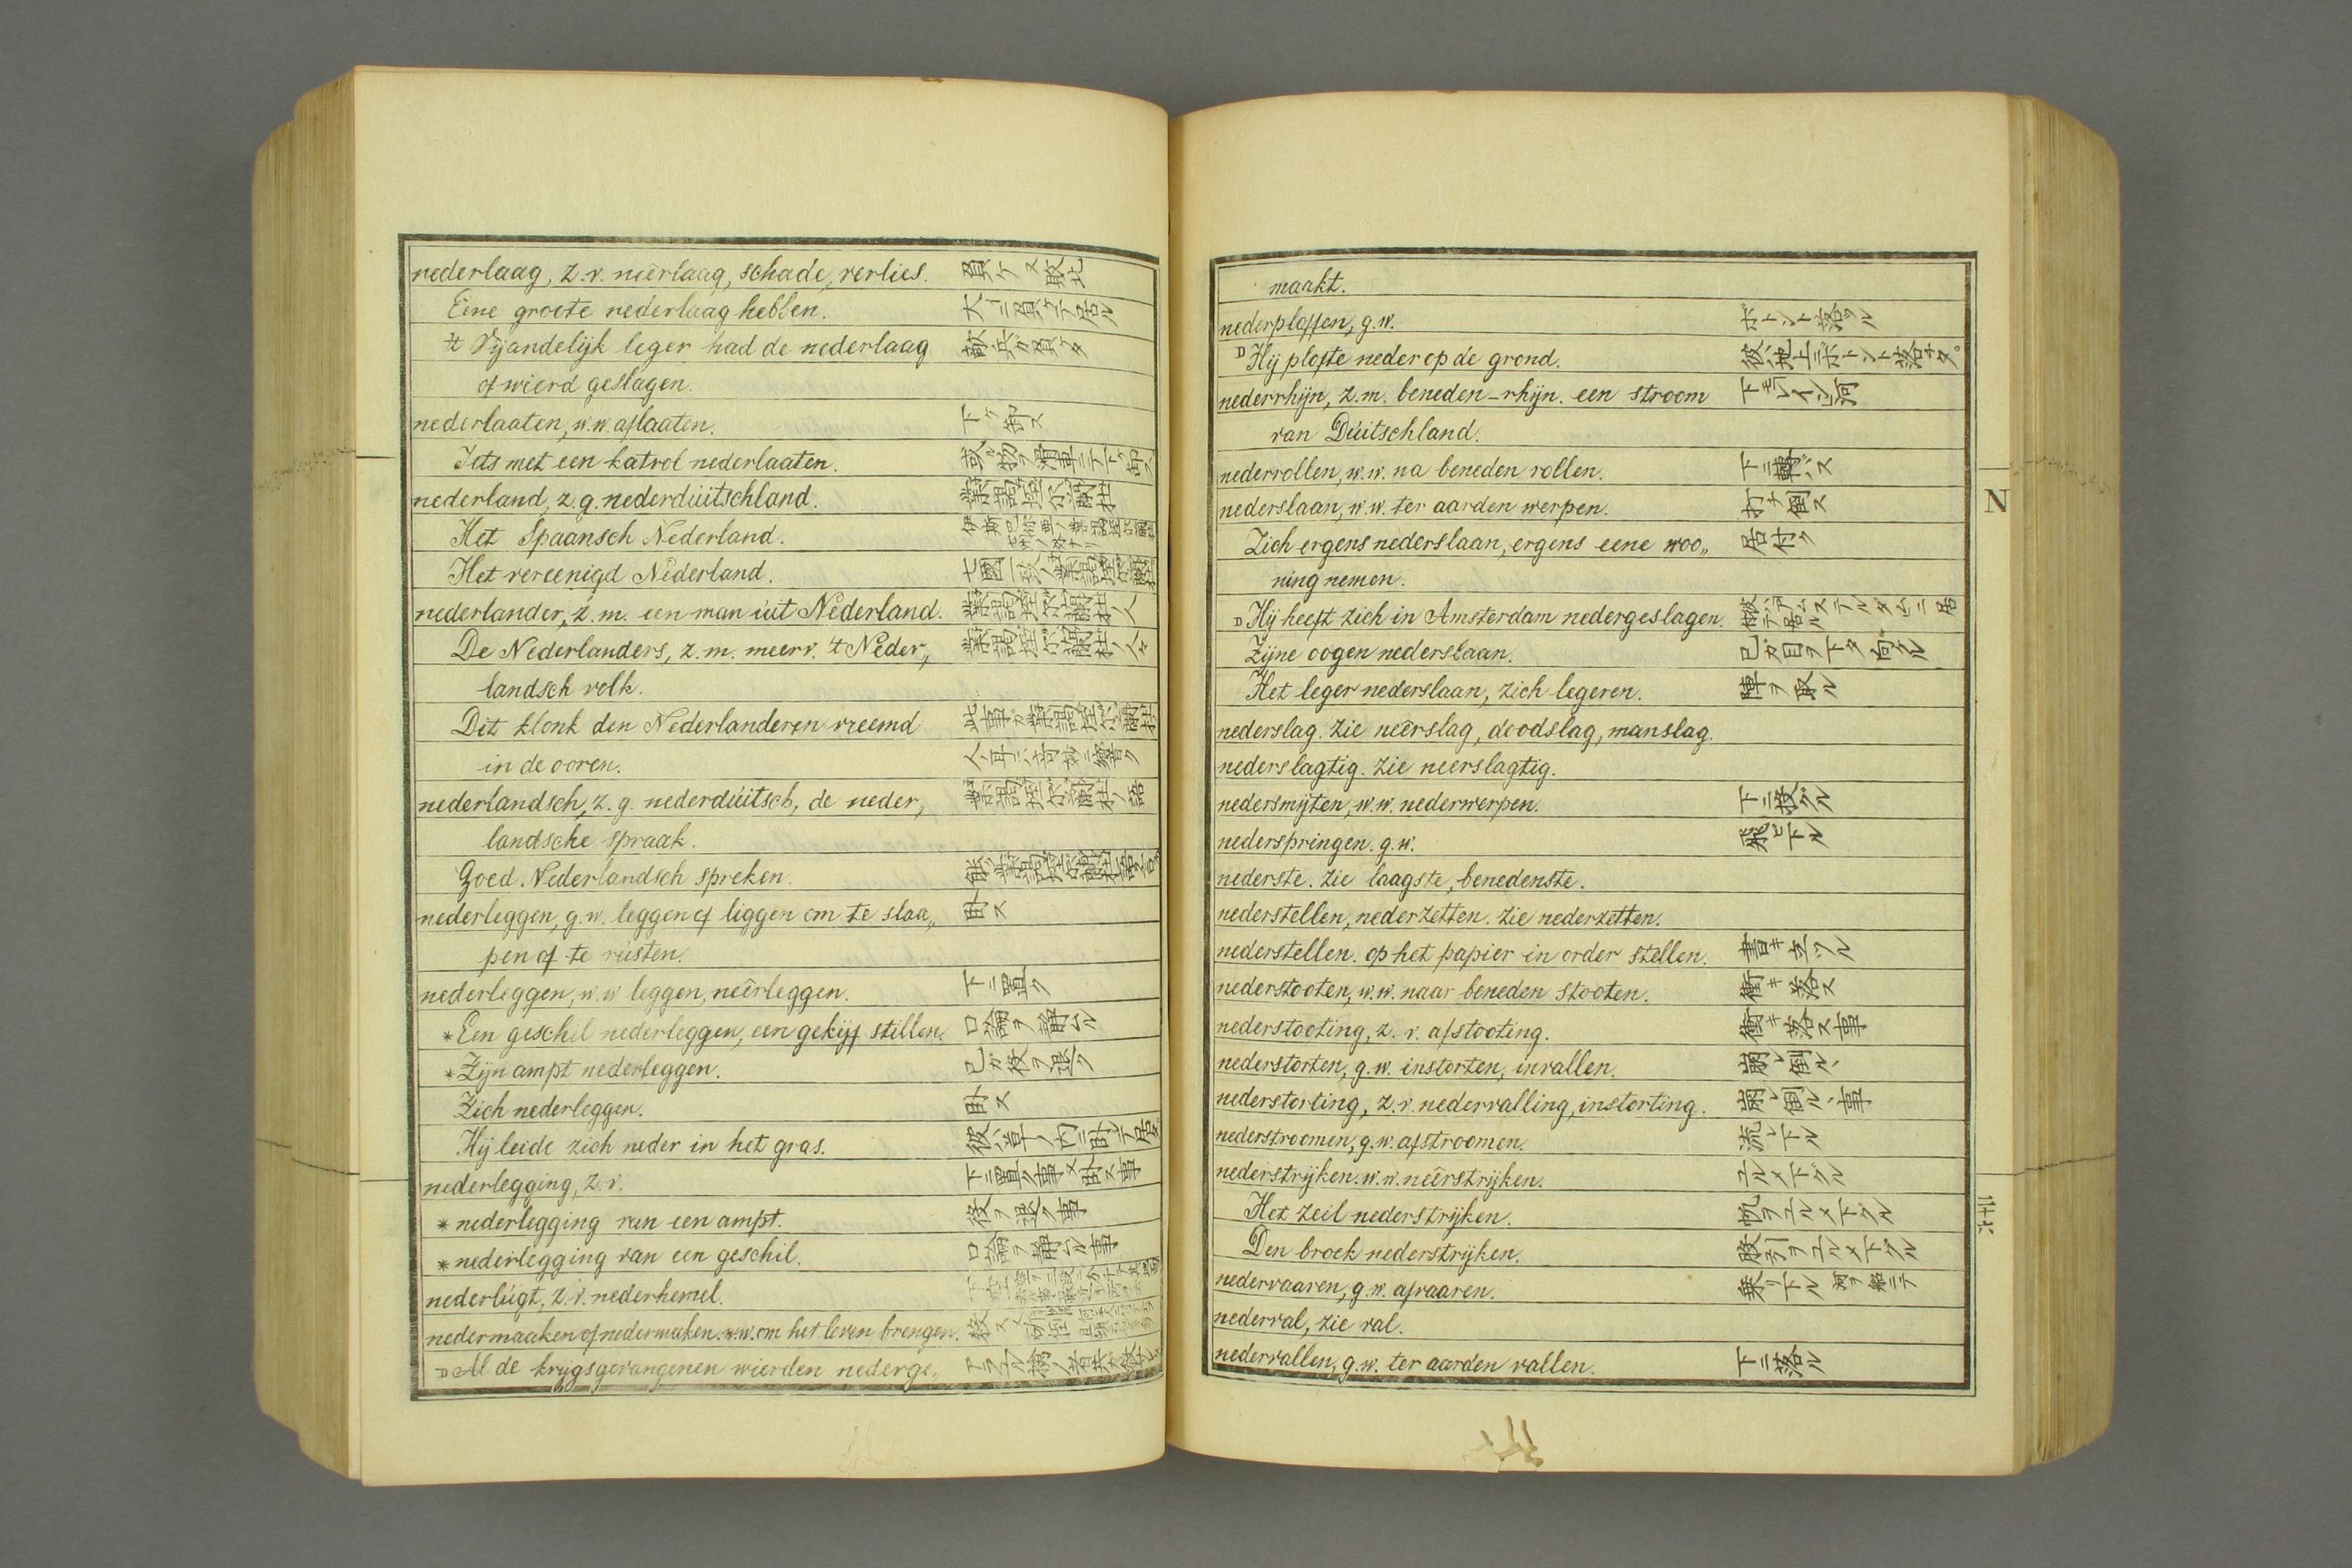 nederlaag, z.v. neêrlaag, schade, verlies. 負ケ 又 敗北
Eine groote nederlaag hebben. 大ニ負ケテ居ル
't Vijandelijk leger had de nederlaag 敵兵ガ負ケタ
of wierd geslagen.
nederlaaten, w.w. aflaaten. 下ゲ卸ス
Iets met een katrol nederlaaten. 或物ヲ滑車ニテ下ゲ卸ス
nederland, z.g. nederdúitschland.
Het Spaansch Nederland.
Het vereenigd Nederland.
nederlander, z.m. een man úit Nederland.
De Nederlanders, z.m. meerv. 't Neder„
landsch volk.
Dit klonk den Nederlanderen vreemd
in de ooren.
nederlandsch, z.g. nederdúitsch, de neder„
landsche spraak.
Goed Nederlandsch spreken.
nederleggen, g.w. leggen of liggen om te slaa„ 臥ス
pen of te rústen.
nederleggen, w.w. leggen, neêrleggen. 下ニ置ク
*Een geschil nederleggen, een gekijf stillen. 口論ヲ静ムル
*Zijn ampt nederleggen. 己ガ役ヲ退ク
Zich nederleggen. 臥ス
Hij leide zich neder in het gras. 彼ハ草ノ内ニ臥シテ居タ
nederlegging, z.v. 下ニ置ク事 又 臥ス事
*nederlegging van een ampt. 役ヲ退ク事
*nederlegging van een geschil. 口論ヲ静ムル事
nederlúgt, z.v. nederhemel.
nedermaaken of nedermaeken. w.w. om het leven brengen.
D Al de krijgsgevangenen wierden nederge„
maakt.
nederploffen, g.w. ボトント落ツル
D Hij plofte neder op de grond. 彼ハ地上ニボトント落チタ。
nederrhijn, z.m. beneden-rhijn. een stroom
van Dúitschland.
nederrollen, w.w. na beneden rollen. 下ニ轉バス
nederslaan, w.w. ter aarden werpen. 打チ倒ス
Zich ergens nederslaan, ergens eene woo„ 居付ク
ning nemen.
D Hij heeft zich in Amsterdam nedergeslagen. 彼ハアムステルダムニ居テ居ル
Zijne oogen nederslaan. 己ガ目ヲ下タ向ケル
Het leger nederslaan, zich legeren. 陣ヲ取ル
nederslag. zie neêrslag, doodslag, manslag.
nederslagtig. zie neerslagtig.
nedersmijten, w.w. nederwerpen. 下ニ投グル
nederspringen. g.w. 飛ビ下ル
nederste. zie laagste, benedenste.
nederstellen, nederzetten. zie nederzetten.
nederstellen. op het papier in order stellen. 書キ立ツル
nederstooten, w.w. naar beneden stooten. 衝キ落ス
nederstooting, z.v. afstooting. 衝キ落ス事
nederstorten, g.w. instorten, invallen. 崩レ倒ルヽ
nederstorting, z.v. nedervalling, instorting. 崩レ倒ルヽ事
nederstroomen, g.w. afstroomen. 流レ下ル
nederstrijken. w.w. neêrstrijken. ユルメ下グル
Het zeil nederstrijken. 帆ヲユルメ下グル
Den broek nederstrijken. 股引ヲユルメ下グル
nedervaaren, g.w. afvaaren. 乗リ下ル 河ヲ船ニテ
nederval, zie val.
nedervallen, g.w. ter aarden vallen. 下ニ落ル
N